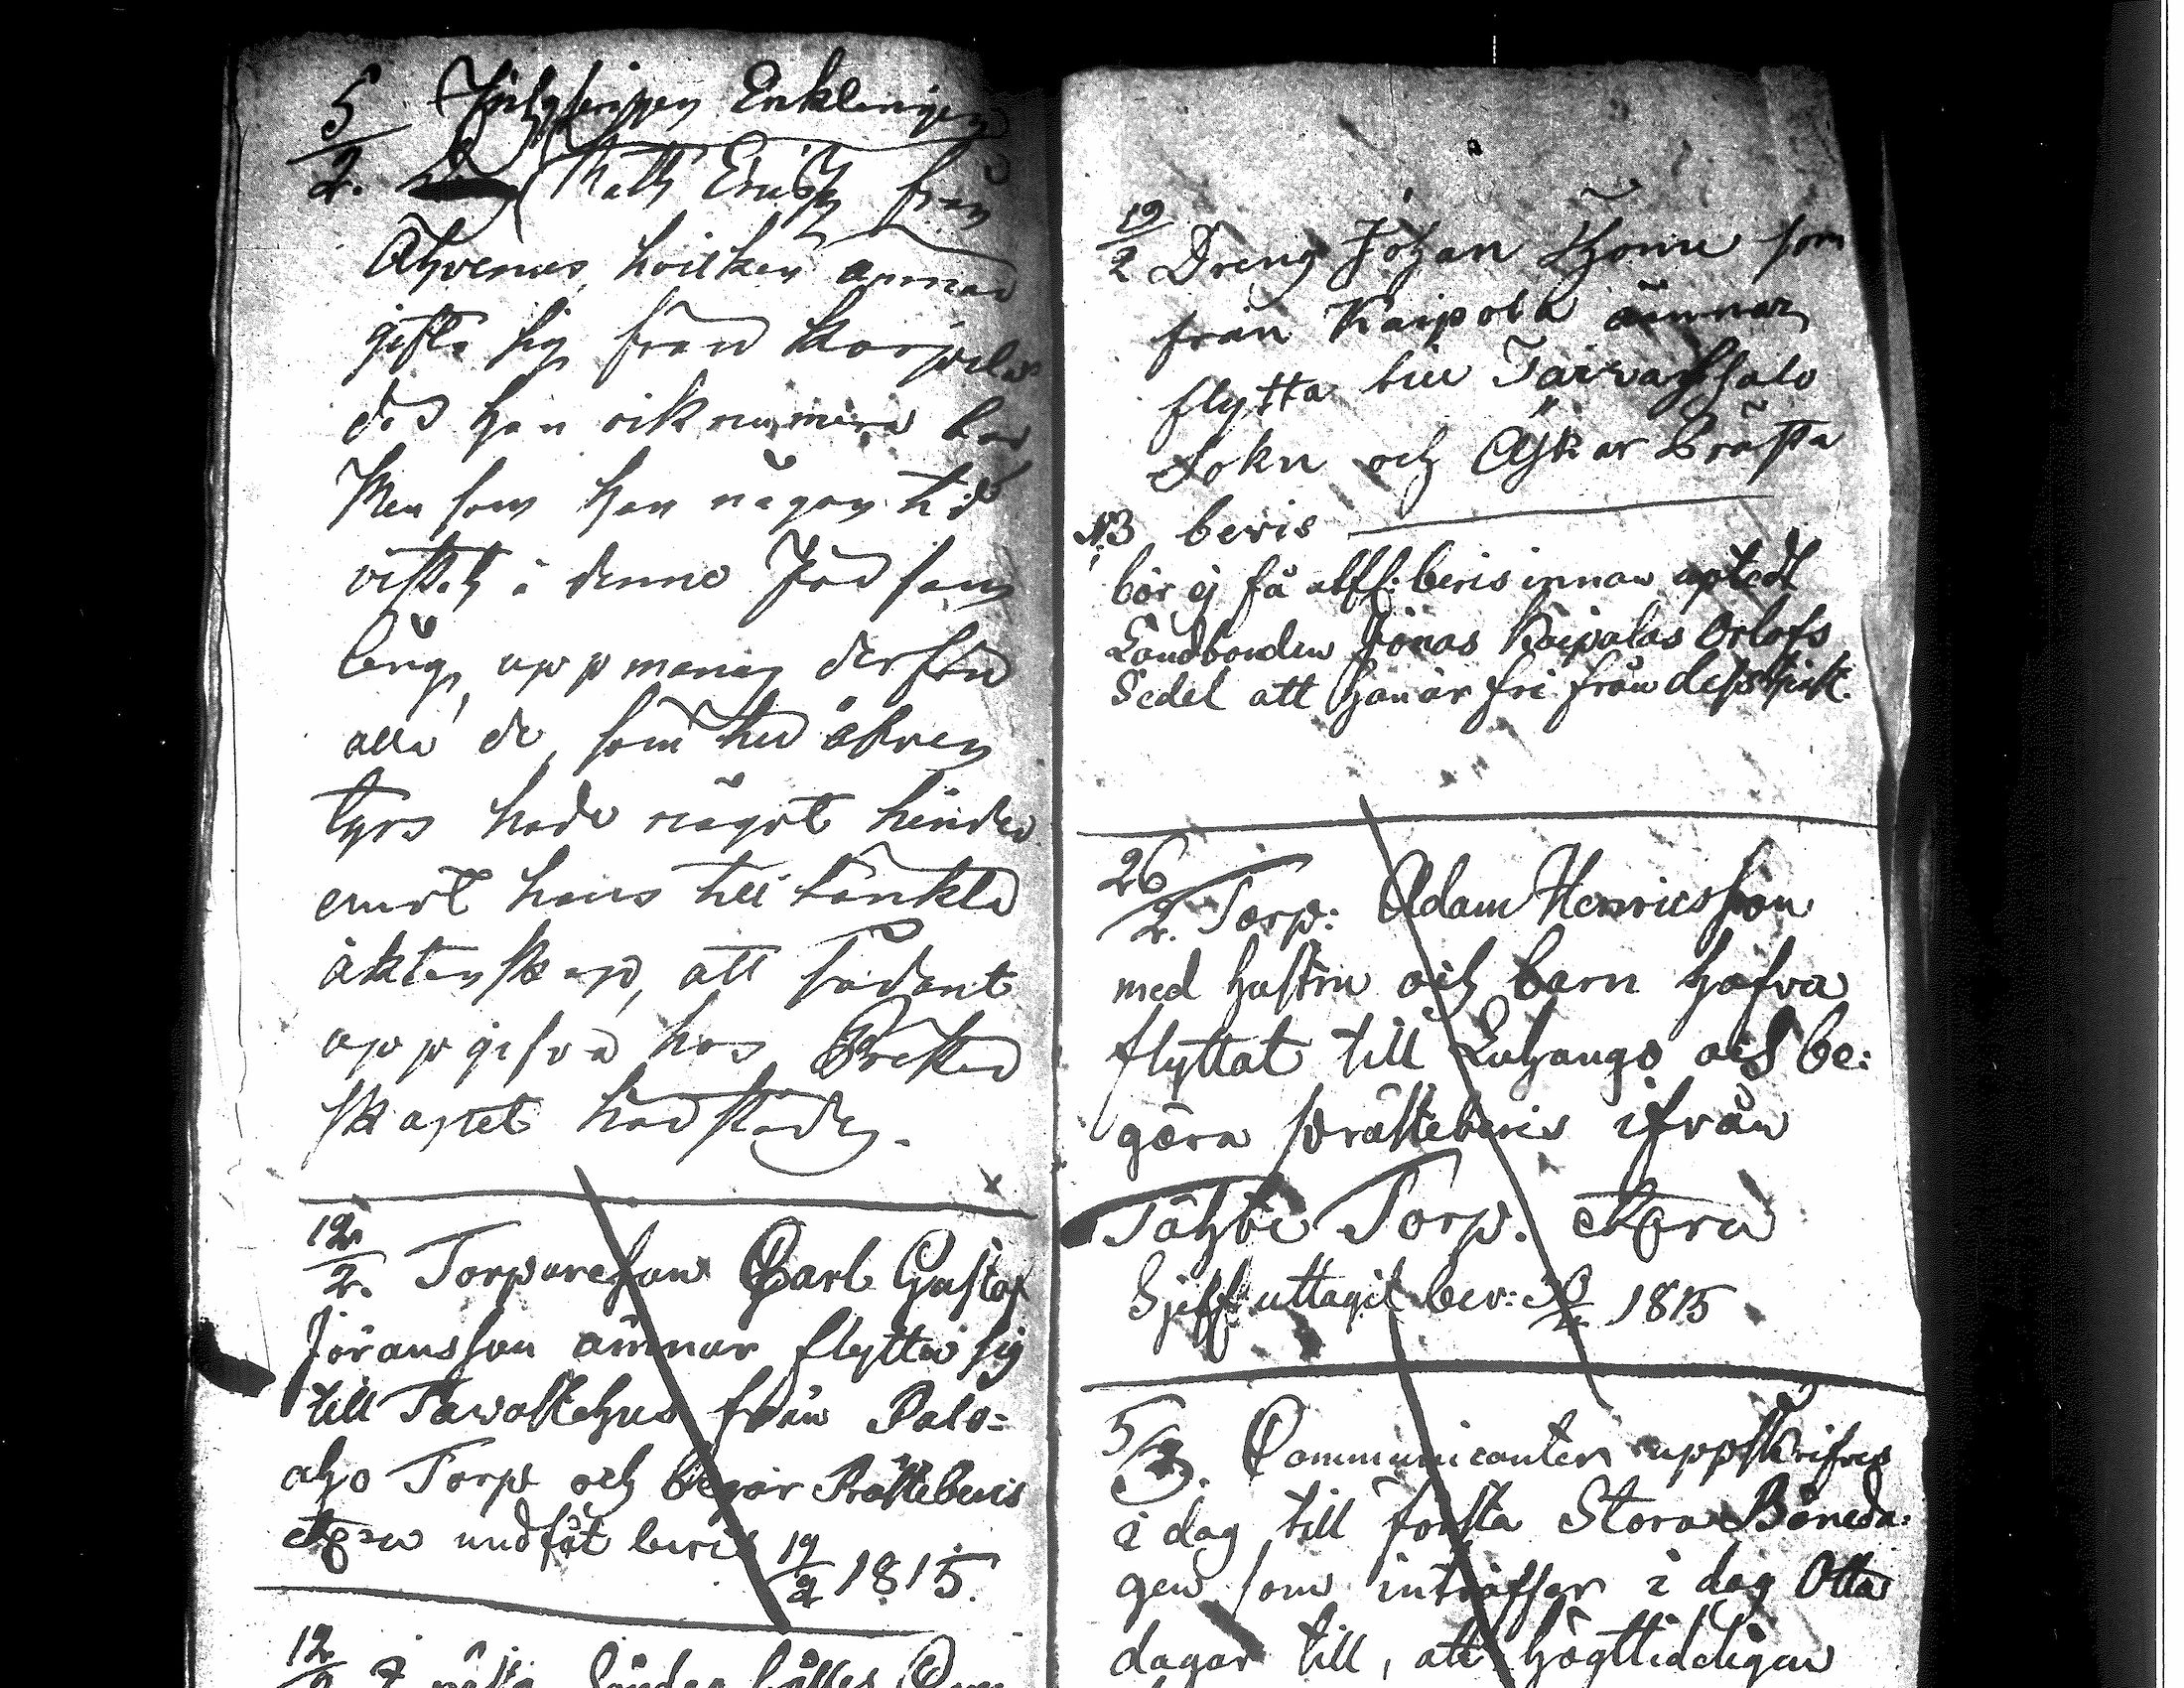 5/2. Enklingen
Matts Ersson från
Ahvenus, hvilken ämnar
gifta sig från Korpilax
der han ock nu mera bor
Men som han någon tid
vistats i denne Försam
ling, uppmanas derföre
alla de, som til äfven
tyrs hade något hinder
emot hans till tänkta
äktenskap, att sådant
uppgifva hos Presters
skapet härstädes.
12/2. Torparesonen Carl Gustaf
Jöransson ämnar flytta sig
till Tawastehus från Palo=
aho Torp och begär Prästebevis
undfåt bevis 19/2 1815.
12/2 I nästa Söndag hålles
12/2 Dreng Johan som
från Kaipola ämnar
flytta till Taivassalo
Sokn och Äskar Prästa
bevis
N3
bör ej få aff: bevis innan uptedt
Landbonden Jonas Kaipolas Orlofs
Sedel att han är fri från dess tjenst.
26/2. Torp: Adam Henricsson
med hustru och barn hafva
flyttat till Luhango och be:
gära prästebevis ifrån
Tähti Torp.
Sjelf uttagit bev: 1815
5/3. Communicanter uppskrifves
i dag till första Stora Böneda:
gen som inträffar i dag Otta
dagar till, att högtideligen